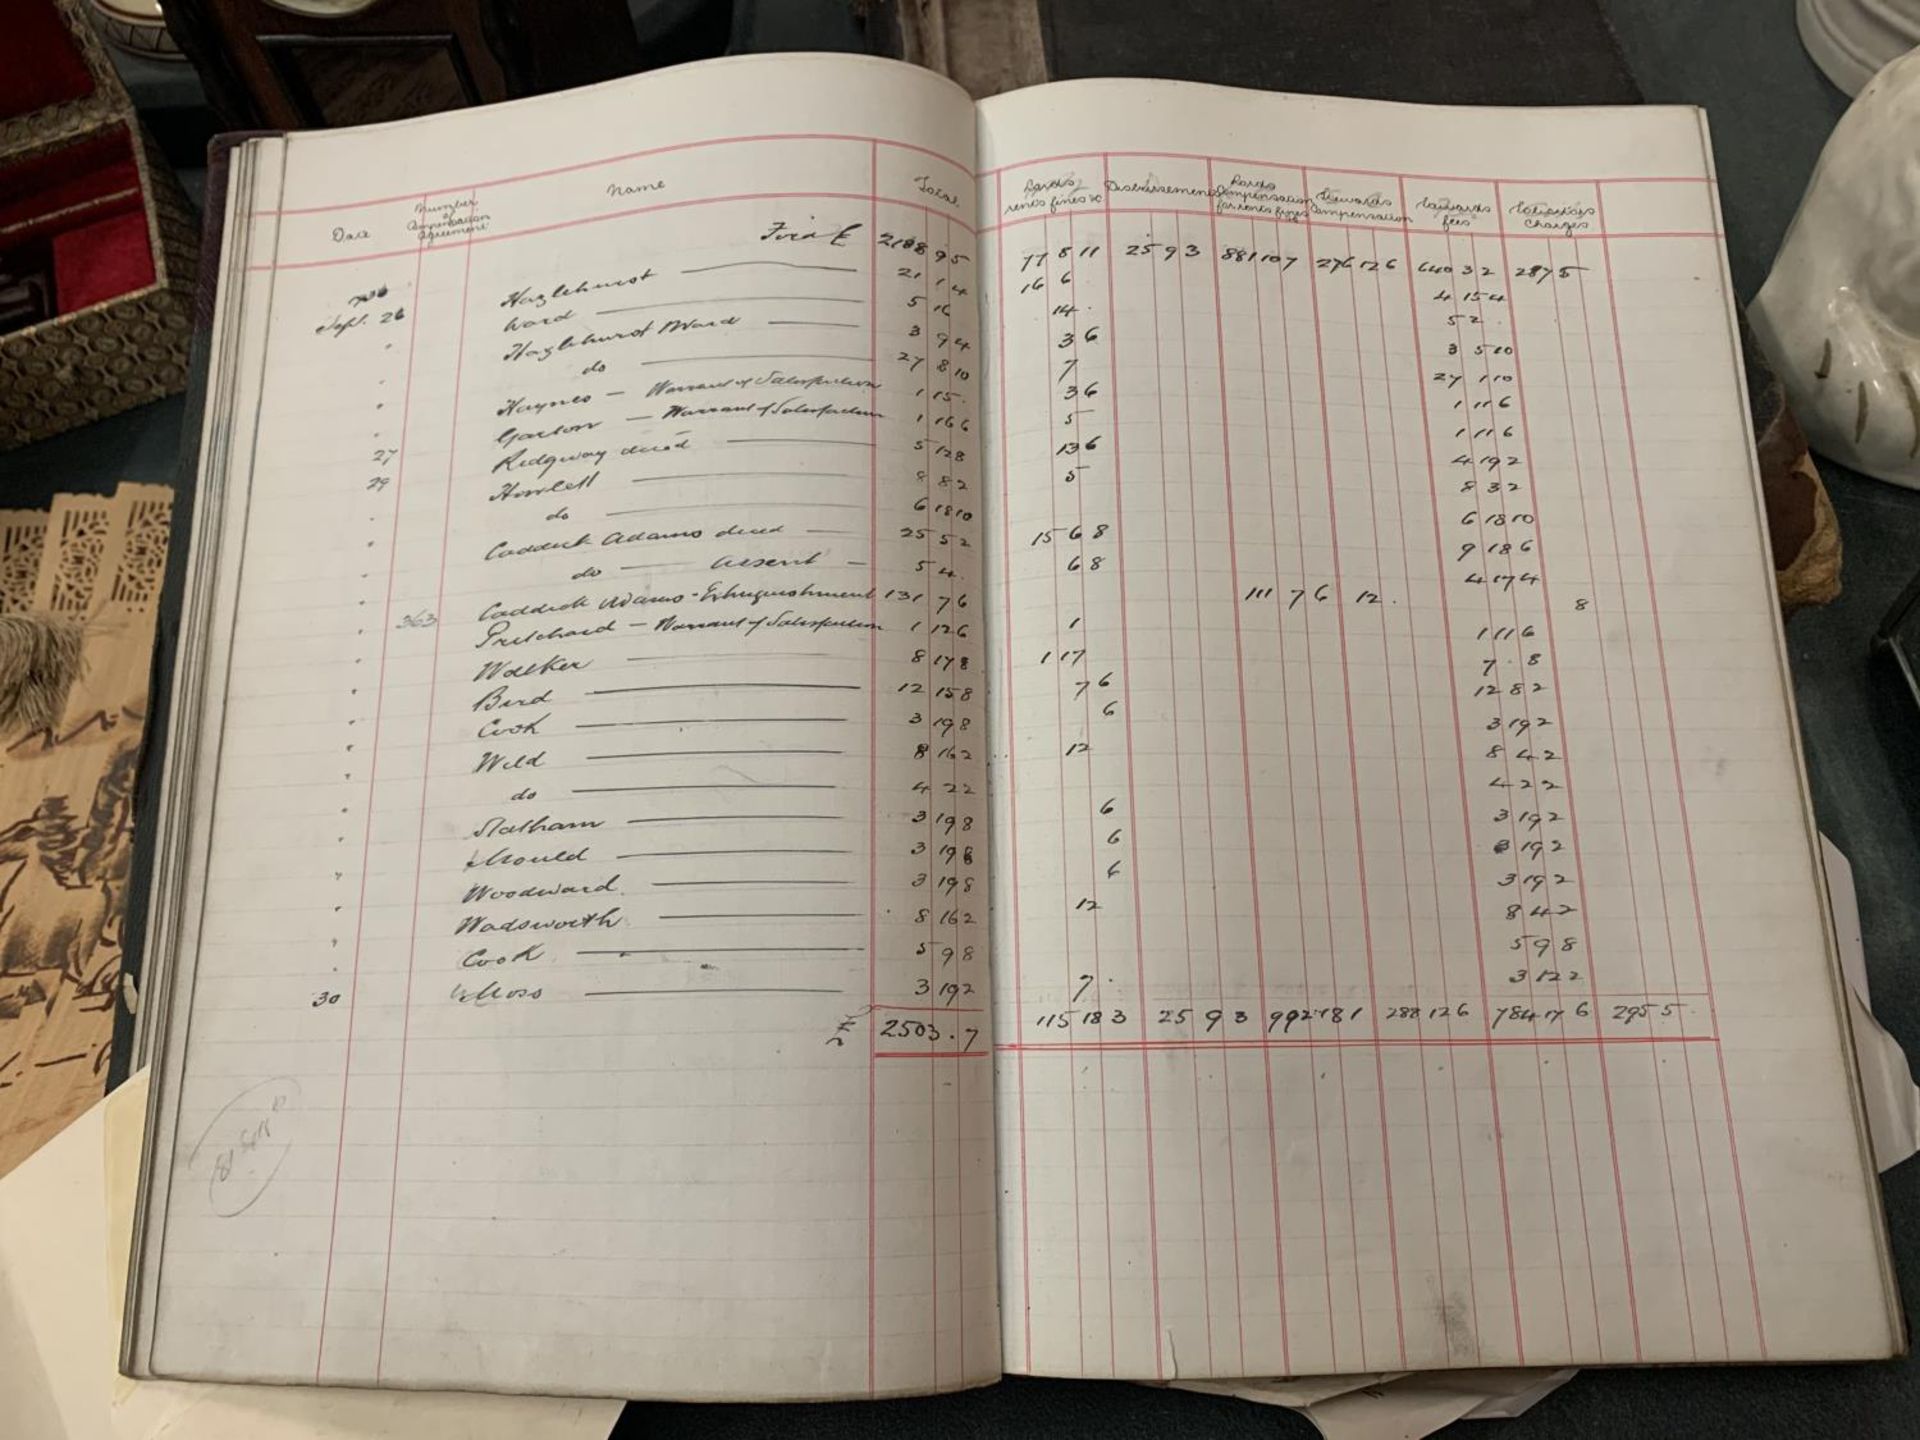 Date Number of Compensation Agreement Name Total Lords rents fines &c Disbursements Lords Compensation for rents fines Stewards Compensation Stewards fees Extinction Charges
Ford £ 2108 9 5 77 8 11 25 9 3 881 10 7 276 12 6 640 3 2 287 5
Sept. 26 Hazlehurst 21 1 4 16 6 4 15 4
" Ward 5 16 14 . 5 2 .
Hazlehurst Ward 3 9 4 3 6 3 5 10
" do 27 8 10 7 27 1 10
" Haynes - Warrant of Satisfaction 1 15 . 3 6 1 11 6
" Garton - Warrant of Satisfaction 1 16 6 5 1 11 6
27 Ridgway deced 5 12 8 13 6 4 19 2
29 Howlett 8 8 2 5 8 3 2
" do 6 18 10 6 18 10
" Caddick Adams deced 25 5 2 15 6 8 9 18 6
" do Assent 5 4 . 6 8 4 17 4
" 363 Caddick Adams - Extinguishment 131 7 6 111 7 6 12 . 8
" Pritchard - Warrant of Satisfaction 1 12 6 1 1 11 6
" Walker 8 17 8 1 17 7 . 8
" Bird 12 15 8 7 6 12 8 2
" Cook 3 19 8 6 3 19 2
" Wild 8 16 2 12 8 4 2
" do 4 2 2 4 2 2
" Statham 3 19 8 6 3 19 2
" Mould 3 19 8 6 3 19 2
" Woodward 3 19 8 6 3 19 2
" Wadsworth 8 16 2 12 8 4 2
" Cook 5 9 8 5 9 8
30 Moss 3 19 2 7 . 3 12 2
£ 2503 . 7 115 18 3 25 9 3 992 18 1 288 12 6 784 17 6 295 5